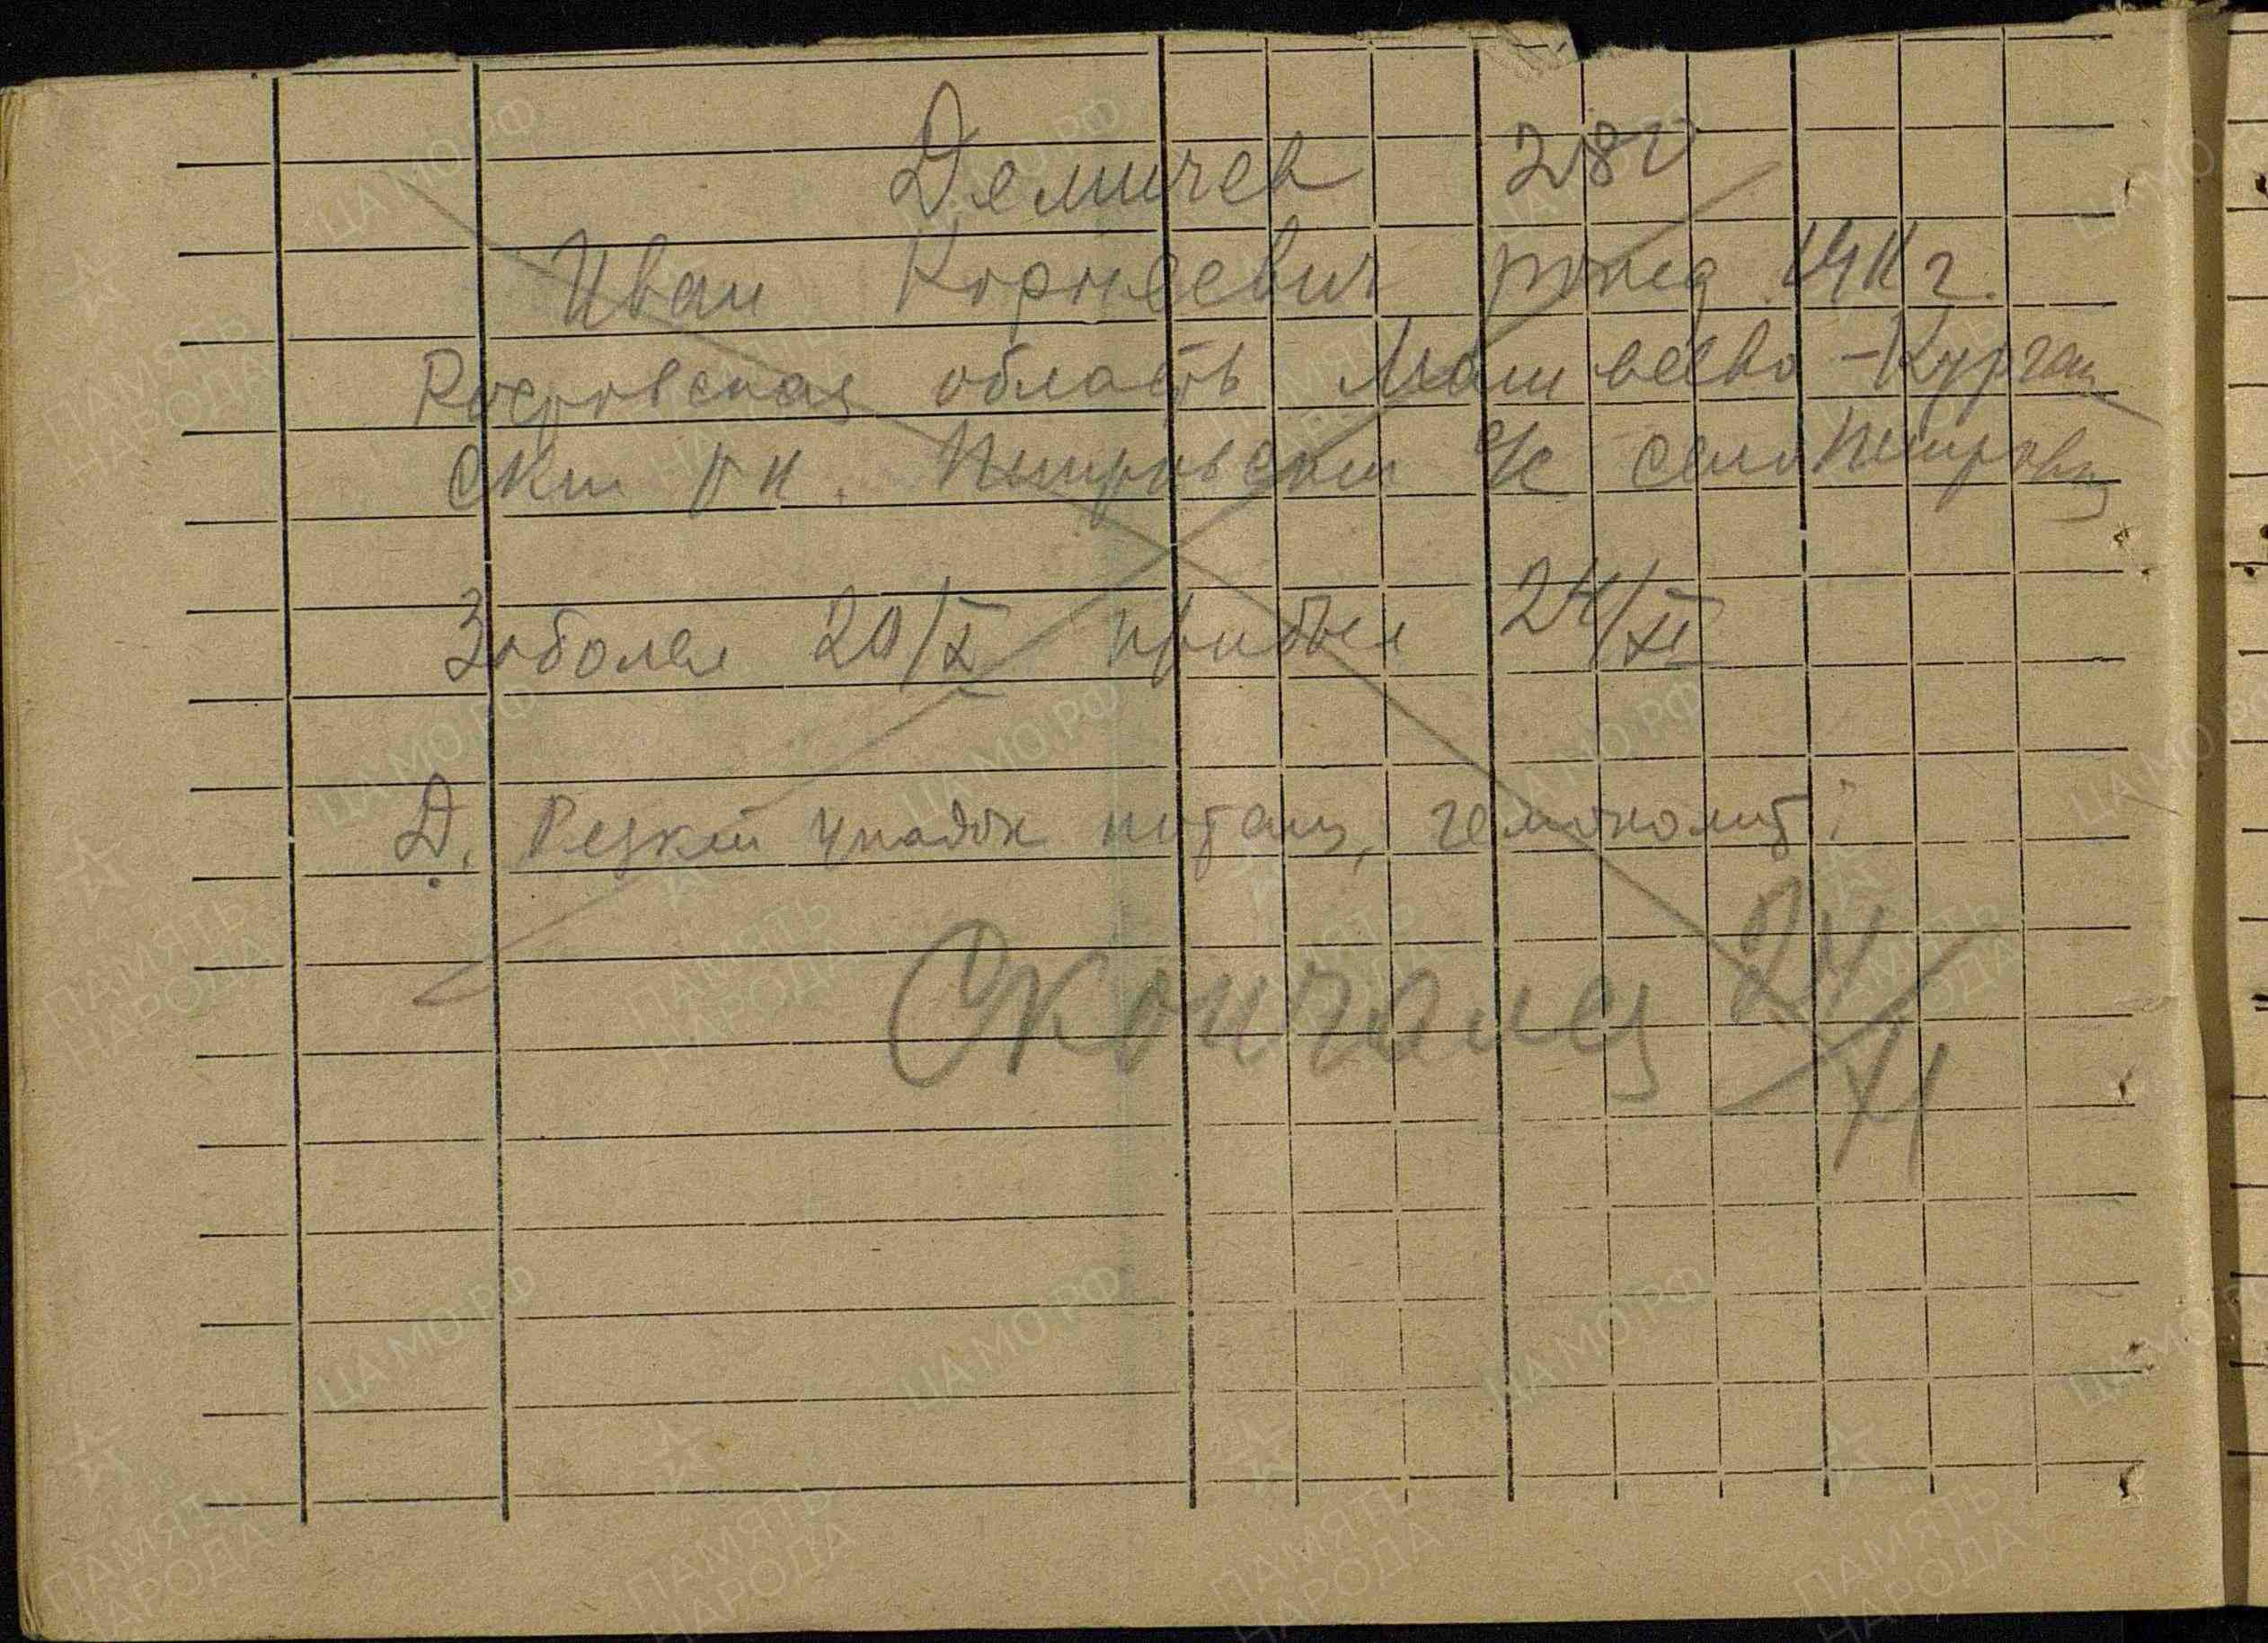 Демичев 28
Иван Корнеевич рожд.
Ростовская область Матвеево-Курган
ский Рн. Петровский с/с село Петровка
Заболел 20/X прибыл 24/XI
Д. Резкий упадок питания, гемоколит?
Скончался 24/XI
ЦА МО РФ
ПАМЯТЬ НАРОДА